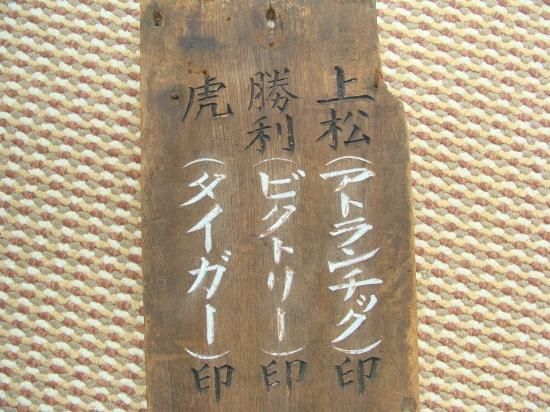 上松(アトランチック)印
勝利(ビクトリー)印
虎(タイガー)印